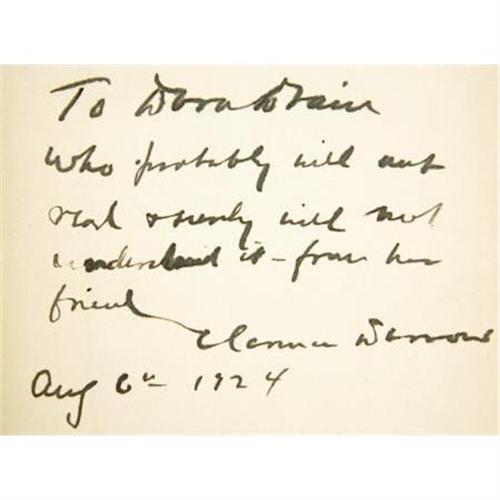 To Dora Blain
who probably will not
read & surely will not
understand it – from her
friend
Clarence Darrow
Aug 6th 1924